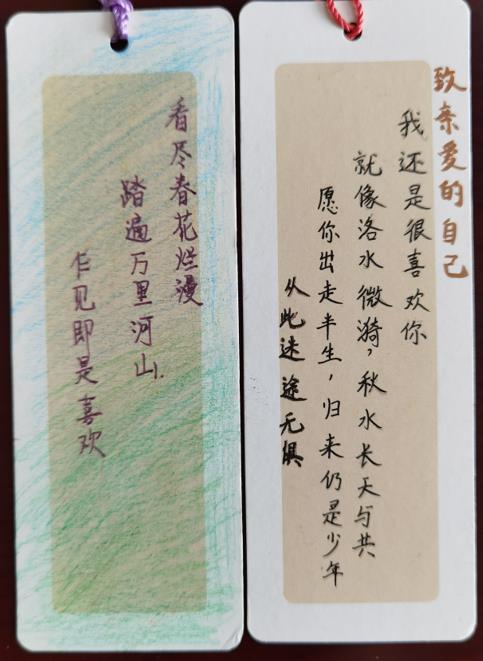 看尽春花烂漫
踏遍万里河山.
乍见即是喜欢
致亲爱的自己
我还是很喜欢你
就像洛水微漪,秋水长天与共
愿你出走半生,归来仍是少年
从此迷途无惧